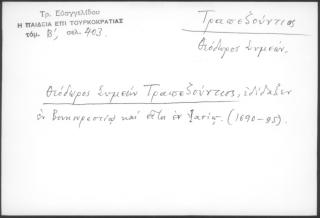 Τρ. Εὐαγγελίδου
Η ΠΑΙΔΕΙΑ ΕΠΙ ΤΟΥΡΚΟΚΡΑΤΙΑΣ
τόμ. Β', σελ. 403.
Τραπεζούντιος
Θεόδωρος Συμεών.
Θεόδωρος Συμεών Τραπεζούντιος, ἐδίδαξεν
ἐν Βουκουρεστίῳ καὶ εἶτα ἐν Ἰασίῳ. (1690-95).